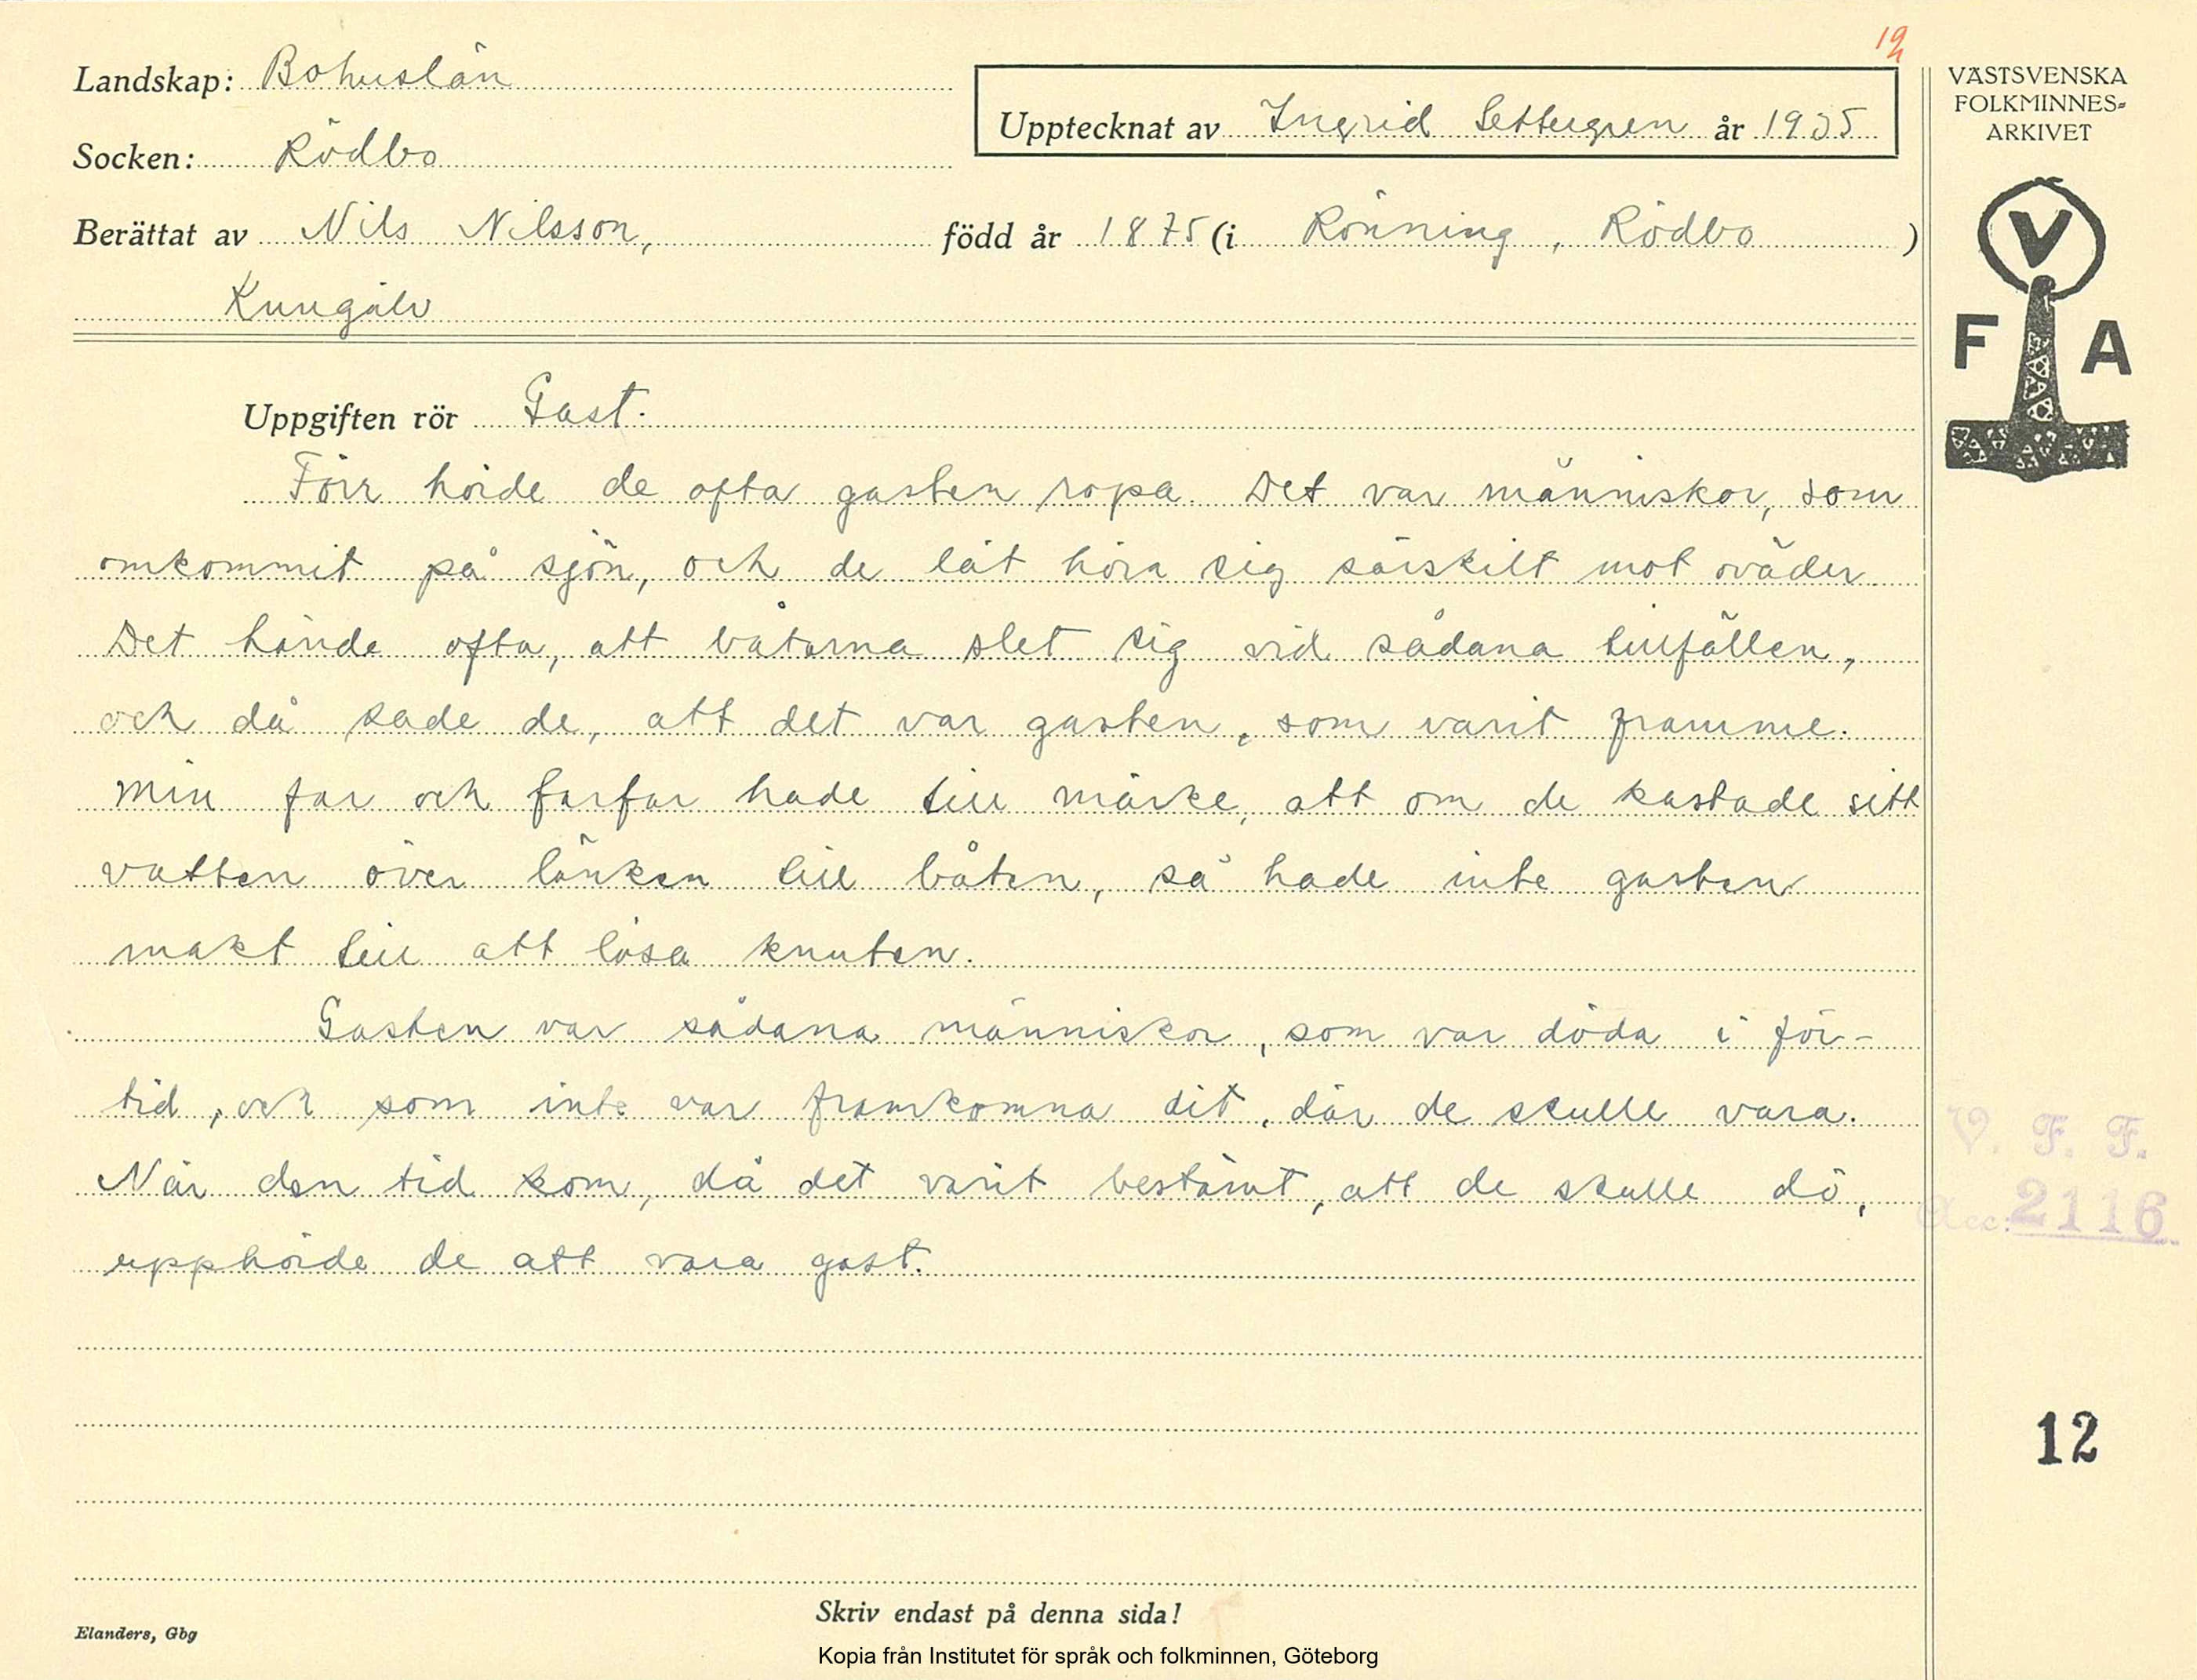 19
Landskap: Bohuslän
Upptecknat av Ingrid Settergren år 1935
Socken: Rödbo
Berättat av Nils Nilsson, född år 1875 (i Rönning, Rödbo )
Kungälv
VÄSTSVENSKA
FOLKMINNES-
ARKIVET
V
F A
Uppgiften rör Gast.
Förr hörde de ofta gasten ropa. Det var människor, som
omkommit på sjön, och de lät höra sig särskilt mot oväder.
Det hände ofta, att båtarna slet sig vid sådana tillfällen,
och då sade de, att det var gasten, som varit framme.
Min far och farfar hade till märke, att om de kastade sitt
vatten över länken till båten, så hade inte gasten
makt till att lösa knuten.
Gasten var sådana människor, som var döda i för-
tid, och som inte var framkomna dit, där de skulle vara.
När den tid kom, då det varit bestämt, att de skulle dö,
upphörde de att vara gast.
V. F. F.
Acc: 2116
12
Skriv endast på denna sida!
Elanders, Gbg
Kopia från Institutet för språk och folkminnen, Göteborg